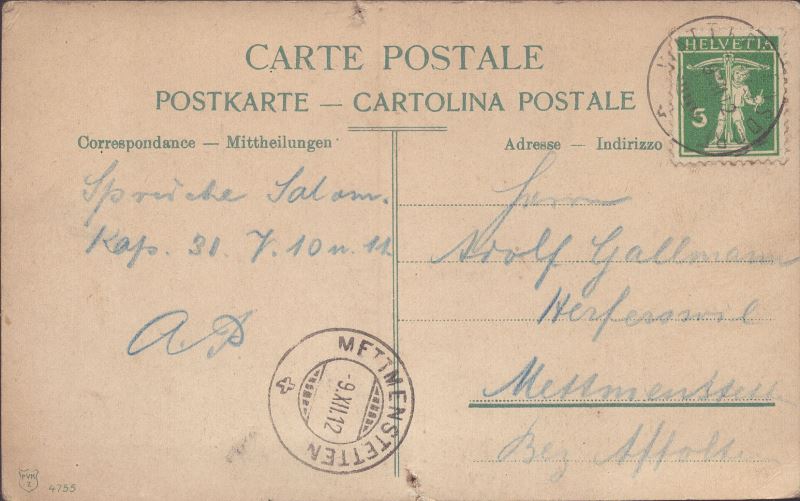 CARTE POSTALE
POSTKARTE — CARTOLINA POSTALE
Correspondance — Mittheilungen
Adresse — Indirizzo
HELVETIA
5
Sprüche Salom.
Kap. 31 V. 10 u. 11
AP
Herrn
Adolf Gallmann
Herferswil
Mettmenstetten
Bez Affolt
METTMENSTETTEN
-9.XII.12
PVK
Z
4755